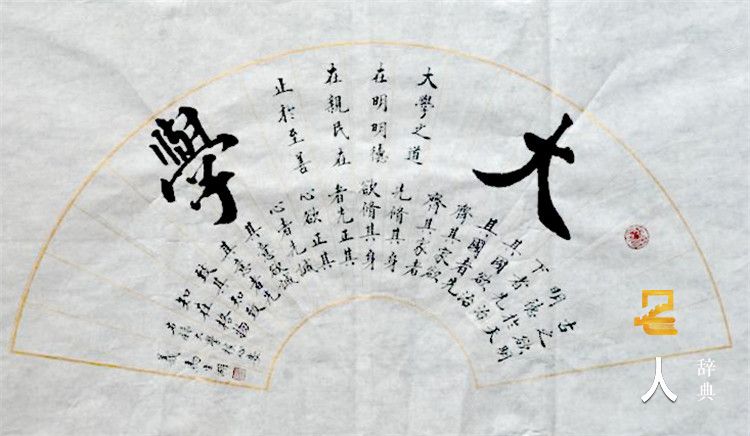 大學
大學之道
在明明德
在親民在
止於至善
古之欲明
明德於天
下者先治
其國欲治
其國者先
齊其家欲
齊其家者
先脩其身
欲脩其身
者先正其
心欲正其
心者先誠
其意欲誠
其意者先
致其知致
知在格物
名人
辞典